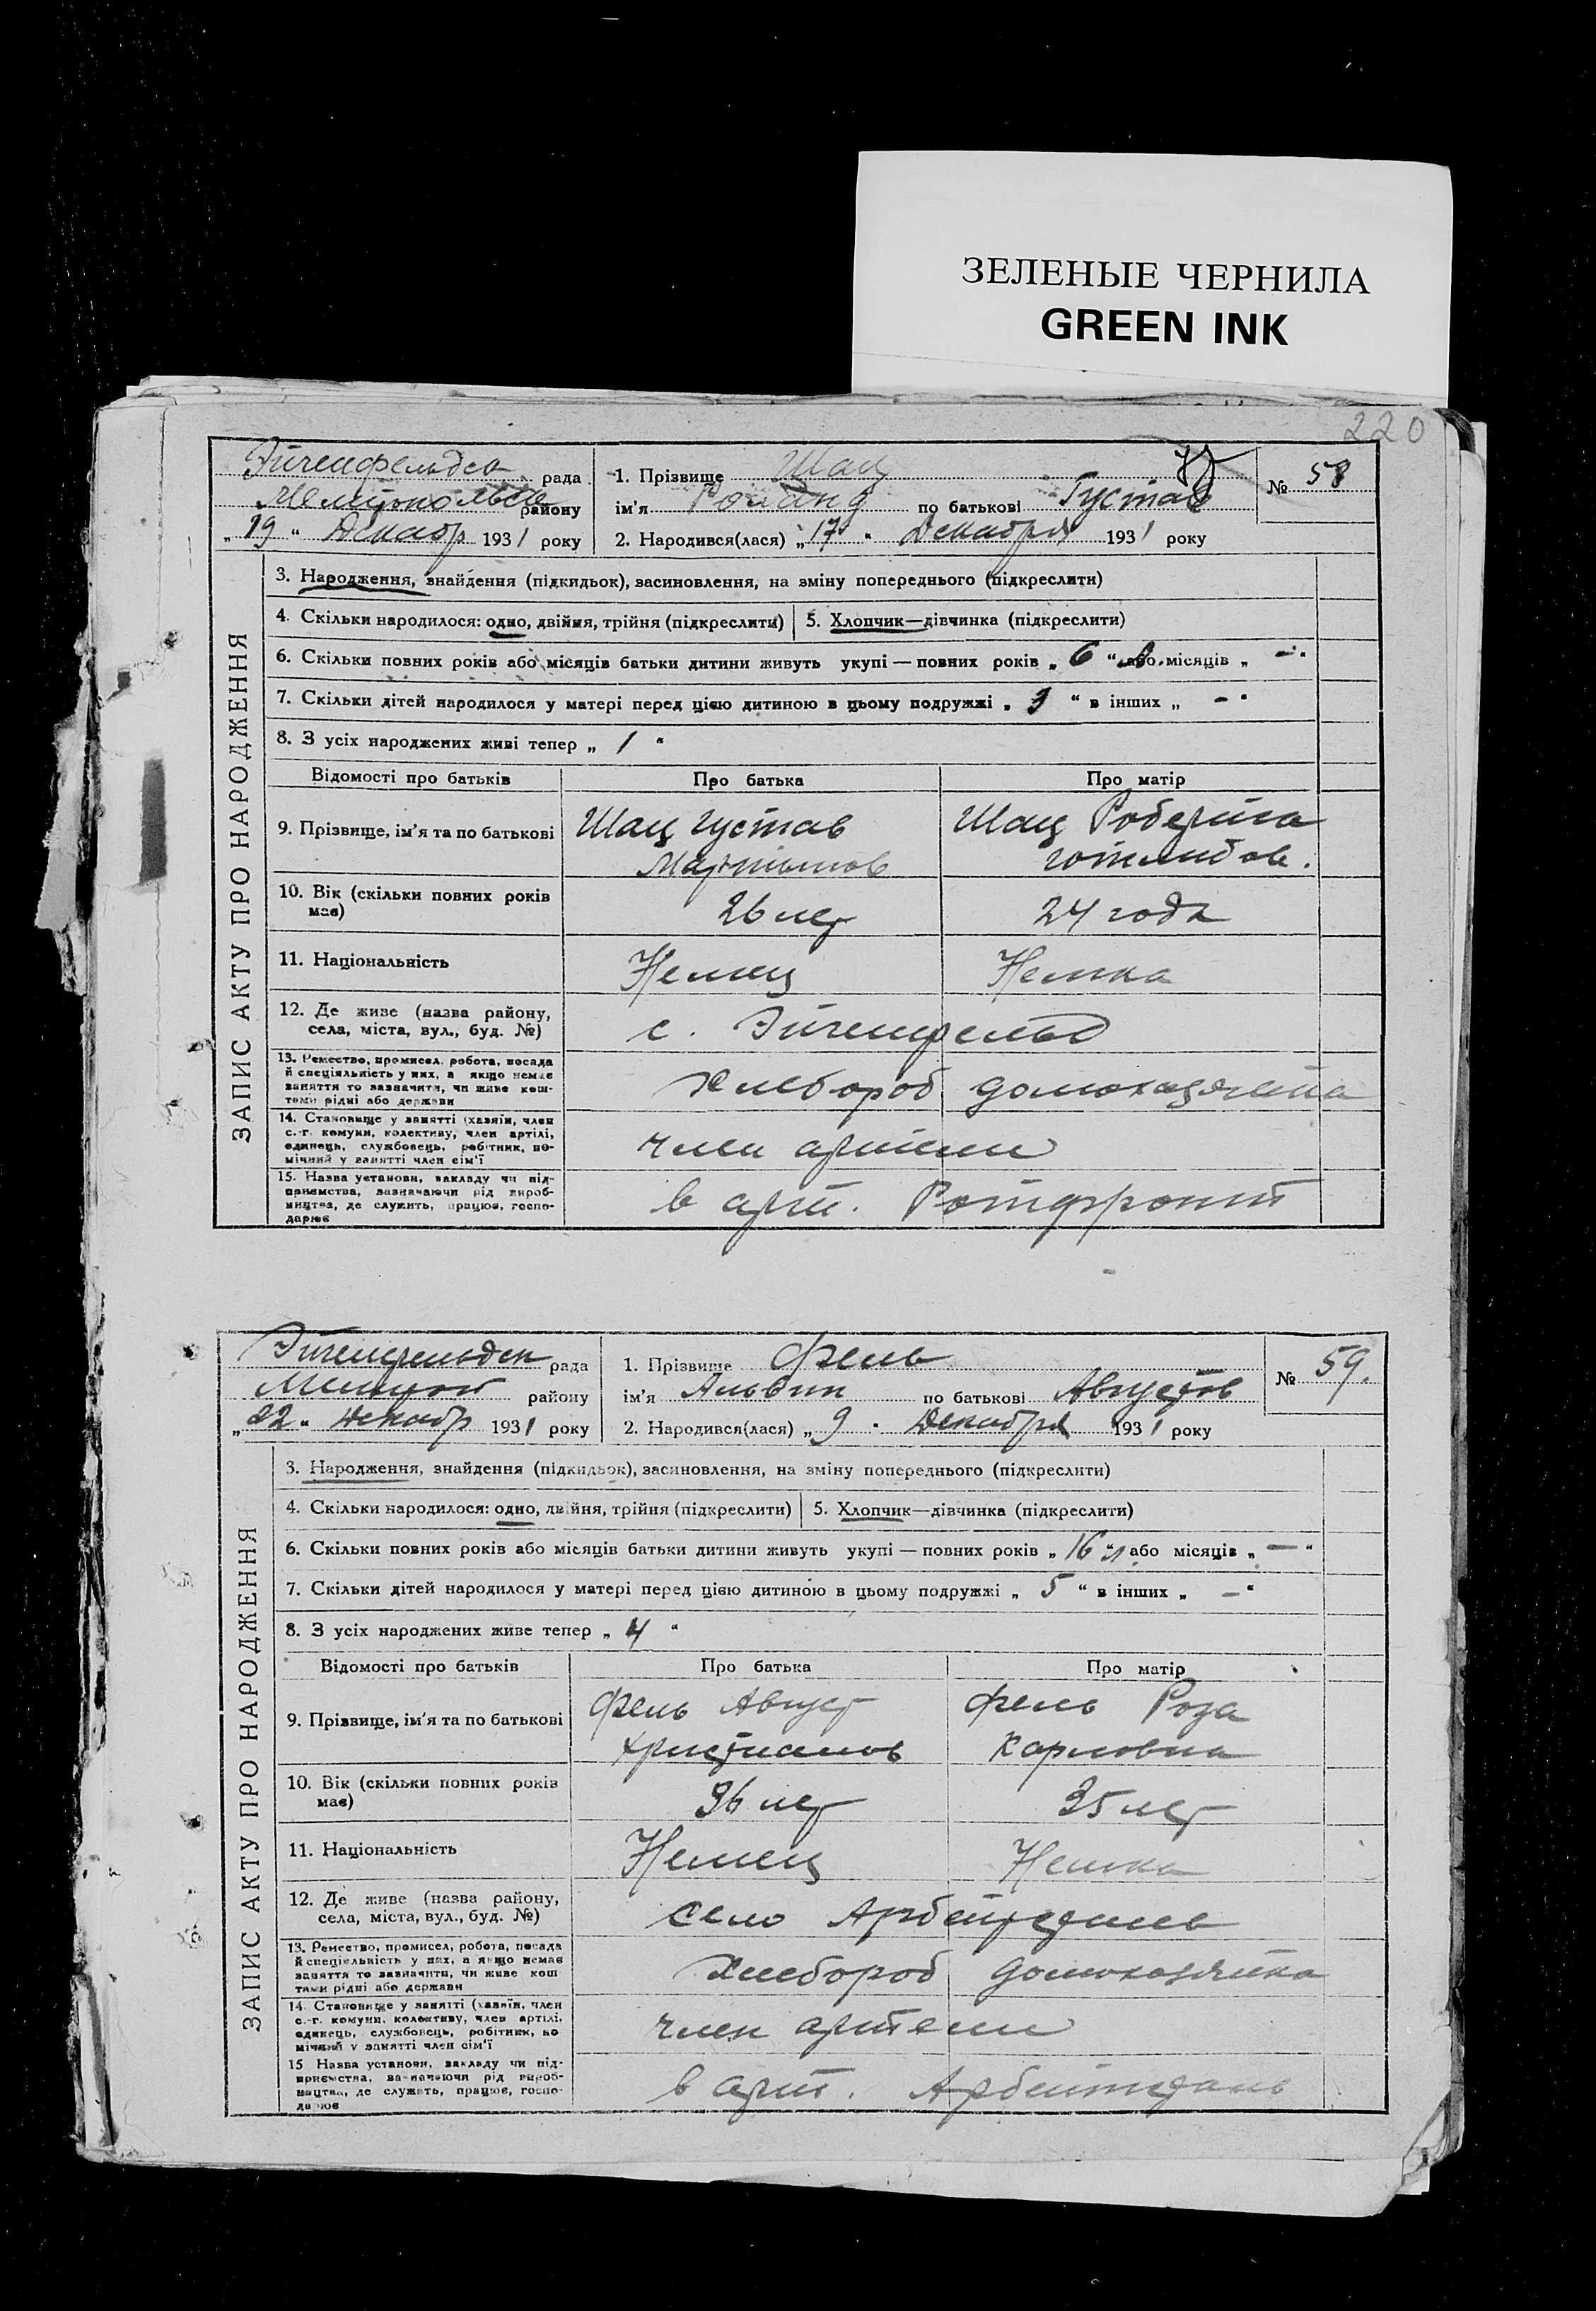 ЗЕЛЕНЫЕ ЧЕРНИЛА
GREEN INK
220
Эйгенфельдск рада
Мелитопольск району
„19“ Декабр 1931 року
1. Прізвище Шац
ім'я Роланд по батькові Густав
2. Народився(лася) „17“ Декабря 1931 року
№ 58
ЗАПИС АКТУ ПРО НАРОДЖЕННЯ
3. Народження, знайдення (підкидьок), засиновлення, на зміну попереднього (підкреслити)
4. Скільки народилося: одно, двійня, трійня (підкреслити) 5. Хлопчик—дівчинка (підкреслити)
6. Скільки повних років або місяців батьки дитини живуть укупі — повних років „ 6 “ або місяців „ — “
7. Скільки дітей народилося у матері перед цією дитиною в цьому подружжі „ 1 “ в інших „ — “
8. З усіх народжених живі тепер „ 1 “
Відомості про батьків Про батька Про матір
9. Прізвище, ім'я та по батькові Шац Густав Шац Роберта
Мартынов Готлибов.
10. Вік (скільки повних років має) 26 лет 24 года
11. Національність Немец Немка
12. Де живе (назва району, села, міста, вул., буд. №) с. Эйгенфельд
13. Ремество, промисел, робота, посада
й спеціяльність у них, а якщо немає
заняття то зазначити, чи живе кош-
тами рідні або держави
Хлебороб домохозяйка
14. Становище у занятті (хазяїн, член
с.-г. комуни, колективу, член артілі,
одинець, службовець, робітник, по-
мічний у занятті член сім'ї
член артели
15. Назва установи, закладу чи під-
приємства, зазначаючи рід вироб-
ництва, де служить, працює, госпо-
дарює
в арт. Ротфронт
Эйгенфельдск рада
Мелитоп району
„22“ Декабр 1931 року
1. Прізвище Фель
ім'я Альвин по батькові Августов
2. Народився(лася) „9“ Декабря 1931 року
№ 59.
ЗАПИС АКТУ ПРО НАРОДЖЕННЯ
3. Народження, знайдення (підкидьок), засиновлення, на зміну попереднього (підкреслити)
4. Скільки народилося: одно, двійня, трійня (підкреслити) 5. Хлопчик—дівчинка (підкреслити)
6. Скільки повних років або місяців батьки дитини живуть укупі — повних років „ 16 “ або місяців „ — “
7. Скільки дітей народилося у матері перед цією дитиною в цьому подружжі „ 5 “ в інших „ — “
8. З усіх народжених живе тепер „ 4 “
Відомості про батьків Про батька Про матір
9. Прізвище, ім'я та по батькові Фель Август Фель Роза
Християнов Карловна
10. Вік (скільки повних років має) 36 лет 35 лет
11. Національність Немец Немка
12. Де живе (назва району, села, міста, вул., буд. №) село
13. Ремество, промисел, робота, посада
й спеціяльність у них, а якщо немає
заняття то зазначити, чи живе кош
тами рідні або держави
Хлебороб домохозяйка
14. Становище у занятті (хазяїн, член
с.-г. комуни, колективу, член артілі,
одинець, службовець, робітник, по
мічний у занятті член сім'ї
член артели
15 Назва установи, закладу чи під-
приємства, зазначаючи рід вироб-
ництва, де служить, працює, госпо-
дарює
в арт.